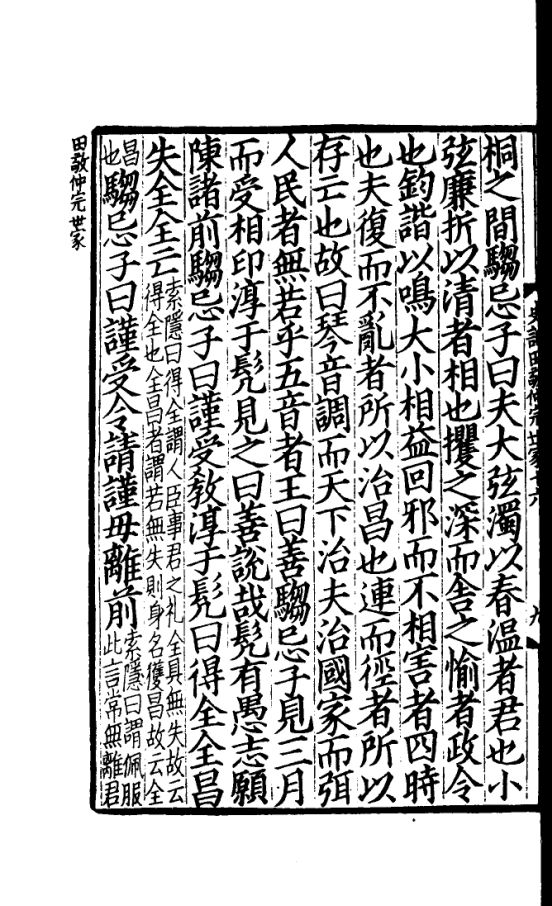 桐之間騶忌子曰夫大弦濁以春温者君也小
弦廉折以清者相也攫之深而舎之愉者政令
也鈞諧以鳴大小相益回邪而不相害者四時
也夫復而不亂者所以治昌也連而徑者所以
存亡也故曰琴音調而天下治夫治國家而弭
人民者無若乎五音者王曰善騶忌子見三月
而受相印淳于髡見之曰善說哉髡有愚志願
陳諸前騶忌子曰謹受教淳于髡曰得全全昌
失全全亡索隱曰得全謂人臣事君之礼全具無失故云
得全也全昌者謂若無失則身名獲昌故云全
昌
也騶忌子曰謹受令請謹毋離前索隱曰謂佩服
此言常無離君
田敬仲完世家